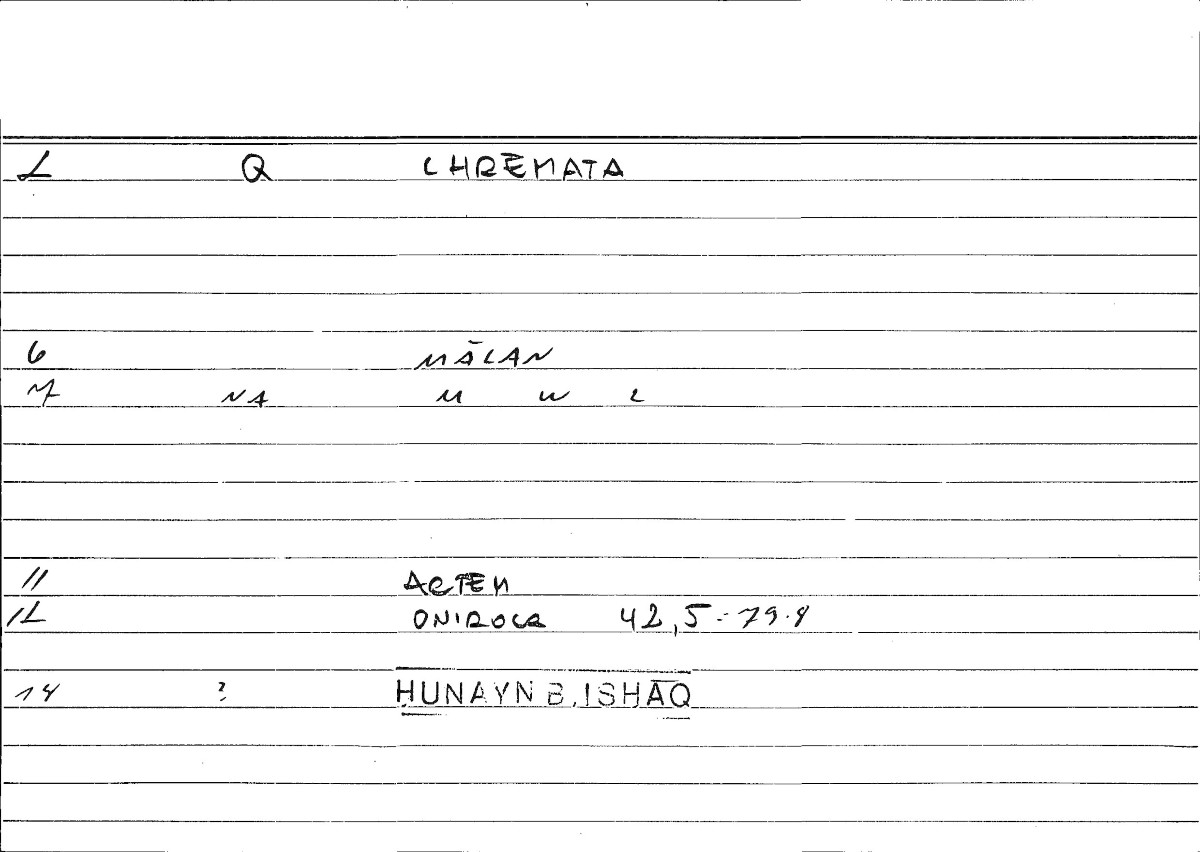 1 Q CHRĒMATA
6 MĀLAN
7 NA M W L
11 ARTEM
12 ONIROCR 42,5-79.8
14 ? ḤUNAYN B. ISḤĀQ